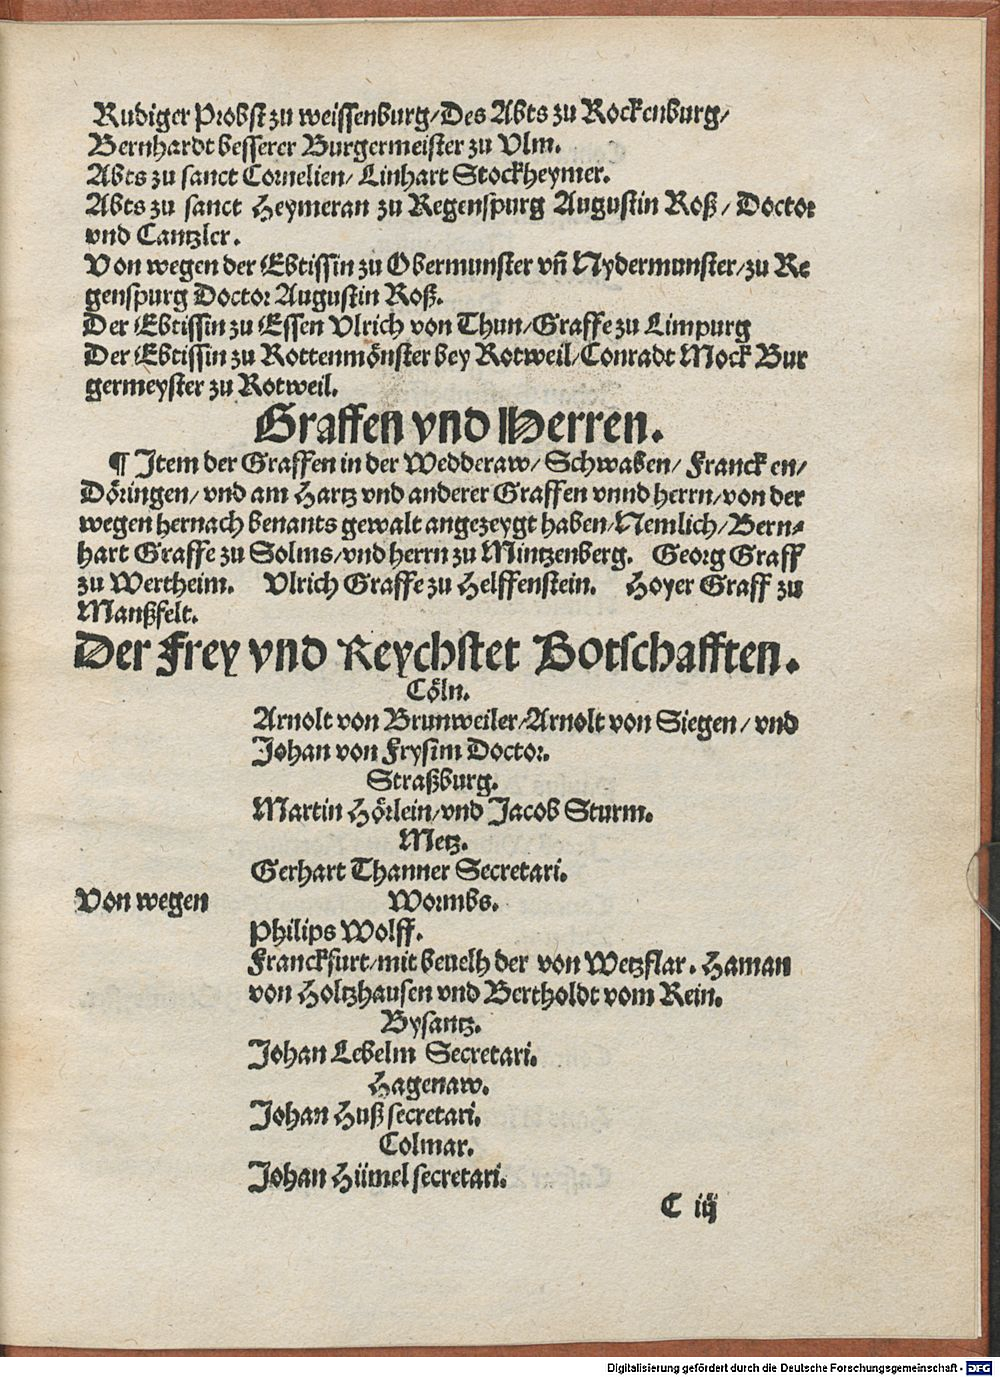 Rudiger Probst zu weissenburg/Des Abts zu Rockenburg/
Bernhardt besserer Burgermeister zu Vlm.
Abts zu sanct Cornelien/ Linhart Stockheymer.
Abts zu sanct Heymeran zu Regenspurg Augustin Roß / Doctor
vnd Cantzler.
Von wegen der Ebtissin zu Obermunster vñ Nydermunster/zu Re
genspurg Doctor Augustin Roß.
Der Ebtissin zu Essen Vlrich von Thun/Graffe zu Limpurg
Der Ebtissin zu Rottenmönster bey Rotweil/Conradt Mock Bur
germeyster zu Rotweil.
Graffen vnd Herren.
¶ Item der Graffen in der Wedderaw/ Schwaben/ Francken/
Döringen/ vnd am Hartz vnd anderer Graffen vnnd herrn/von der
wegen hernach benants gewalt angezeygt haben/Nemlich/Bern⸗
hart Graffe zu Solms/vnd herrn zu Mintzenberg. Georg Graff
zu Wertheim. Vlrich Graffe zu Helffenstein. Hoyer Graff zu
Manßfelt.
Der Frey vnd Reychstet Botschafften.
Cöln.
Arnolt von Brunweiler/Arnolt von Siegen/ vnd
Johan von Frysim Doctor.
Straßburg.
Martin Hörlein/vnd Jacob Sturm.
Metz.
Gerhart Thanner Secretari.
Von wegen Wormbs.
Philips Wolff.
Franckfurt/mit beuelh der von Wetzflar. Haman
von Holtzhausen vnd Bertholdt vom Rein.
Bysantz.
Johan Lebelm Secretari.
Hagenaw.
Johan Huß secretari.
Colmar.
Johan Hümel secretari.
C iij
Digitalisierung gefördert durch die Deutsche Forschungsgemeinschaft - DFG